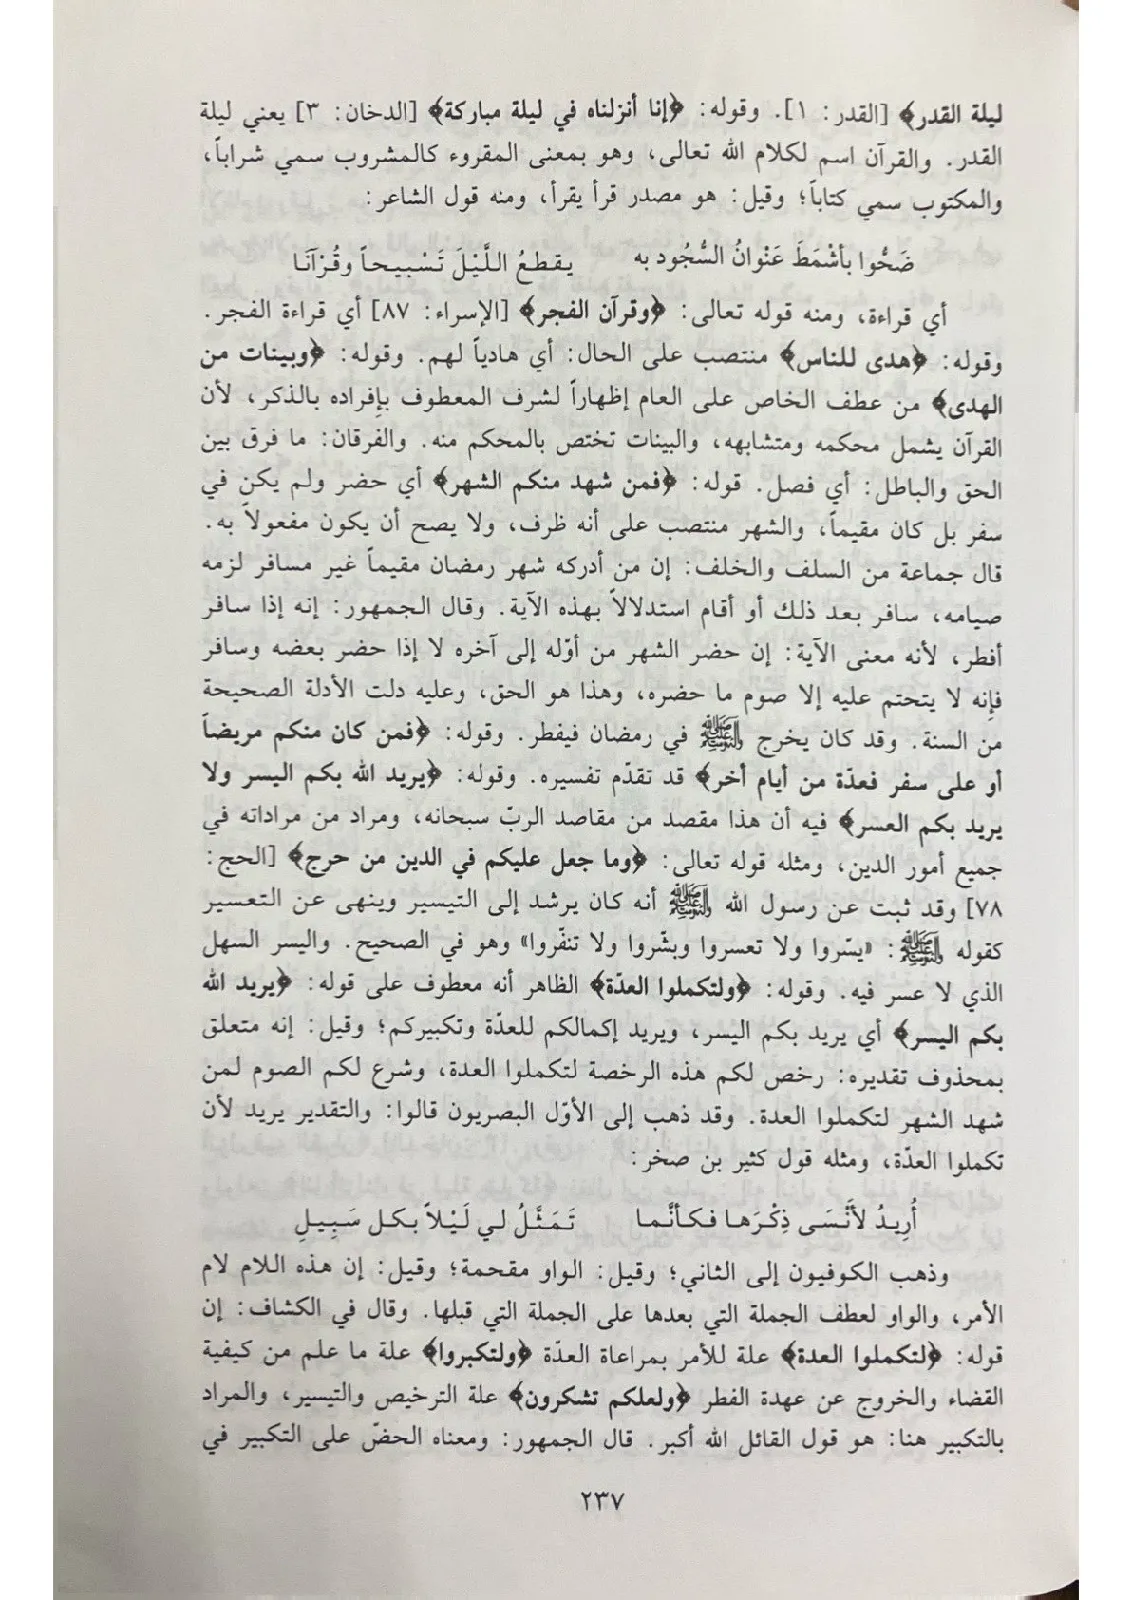 ليلة القدر﴾ [القدر: ١]. وقوله: ﴿إنا أنزلناه في ليلة مباركة﴾ [الدخان: ٣] يعني ليلة
القدر. والقرآن اسم لكلام الله تعالى، وهو بمعنى المقروء كالمشروب سمي شراباً،
والمكتوب سمي كتاباً؛ وقيل: هو مصدر قرأ يقرأ، ومنه قول الشاعر:
ضَحُّوا بأشْمَطَ عَنْوانُ السُّجُود به يقطعُ اللَّيْلَ تَسْبيحاً وقُرْآنَا
أي قراءة، ومنه قوله تعالى: ﴿وقرآن الفجر﴾ [الإسراء: ٨٧] أي قراءة الفجر.
وقوله: ﴿هدى للناس﴾ منتصب على الحال: أي هادياً لهم. وقوله: ﴿وبينات من
الهدى﴾ من عطف الخاص على العام إظهاراً لشرف المعطوف بإفراده بالذكر، لأن
القرآن يشمل محكمه ومتشابهه، والبينات تختص بالمحكم منه. والفرقان: ما فرق بين
الحق والباطل: أي فصل. قوله: ﴿فمن شهد منكم الشهر﴾ أي حضر ولم يكن في
سفر بل كان مقيماً، والشهر منتصب على أنه ظرف، ولا يصح أن يكون مفعولاً به.
قال جماعة من السلف والخلف: إن من أدركه شهر رمضان مقيماً غير مسافر لزمه
صيامه، سافر بعد ذلك أو أقام استدلالاً بهذه الآية. وقال الجمهور: إنه إذا سافر
أفطر، لأنه معنى الآية: إن حضر الشهر من أوّله إلى آخره لا إذا حضر بعضه وسافر
فإنه لا يتحتم عليه إلا صوم ما حضره، وهذا هو الحق، وعليه دلت الأدلة الصحيحة
من السنة. وقد كان يخرج ﷺ في رمضان فيفطر. وقوله: ﴿فمن كان منكم مريضاً
أو على سفر فعدّة من أيام أخر﴾ قد تقدّم تفسيره. وقوله: ﴿يريد الله بكم اليسر ولا
يريد بكم العسر﴾ فيه أن هذا مقصد من مقاصد الربّ سبحانه، ومراد من مراداته في
جميع أمور الدين، ومثله قوله تعالى: ﴿وما جعل عليكم في الدين من حرج﴾ [الحج:
٧٨] وقد ثبت عن رسول الله ﷺ أنه كان يرشد إلى التيسير وينهى عن التعسير
كقوله ﷺ: «يسّروا ولا تعسروا وبشّروا ولا تنفّروا» وهو في الصحيح. واليسر السهل
الذي لا عسر فيه. وقوله: ﴿ولتكملوا العدّة﴾ الظاهر أنه معطوف على قوله: ﴿يريد الله
بكم اليسر﴾ أي يريد بكم اليسر، ويريد إكمالكم للعدّة وتكبيركم؛ وقيل: إنه متعلق
بمحذوف تقديره: رخص لكم هذه الرخصة لتكملوا العدة، وشرع لكم الصوم لمن
شهد الشهر لتكملوا العدة. وقد ذهب إلى الأوّل البصريون قالوا: والتقدير يريد لأن
تكملوا العدّة، ومثله قول كثير بن صخر:
أُرِيدُ لأَنْسَى ذِكْرَها فكأنَّما تَمَثَّلُ لي لَيْلاً بكل سَبِيلِ
وذهب الكوفيون إلى الثاني؛ وقيل: الواو مقحمة؛ وقيل: إن هذه اللام لام
الأمر، والواو لعطف الجملة التي بعدها على الجملة التي قبلها. وقال في الكشاف: إن
قوله: ﴿لتكملوا العدة﴾ علة للأمر بمراعاة العدّة ﴿ولتكبروا﴾ علة ما علم من كيفية
القضاء والخروج عن عهدة الفطر ﴿ولعلكم تشكرون﴾ علة الترخيص والتيسير، والمراد
بالتكبير هنا: هو قول القائل الله أكبر. قال الجمهور: ومعناه الحضّ على التكبير في
٢٣٧